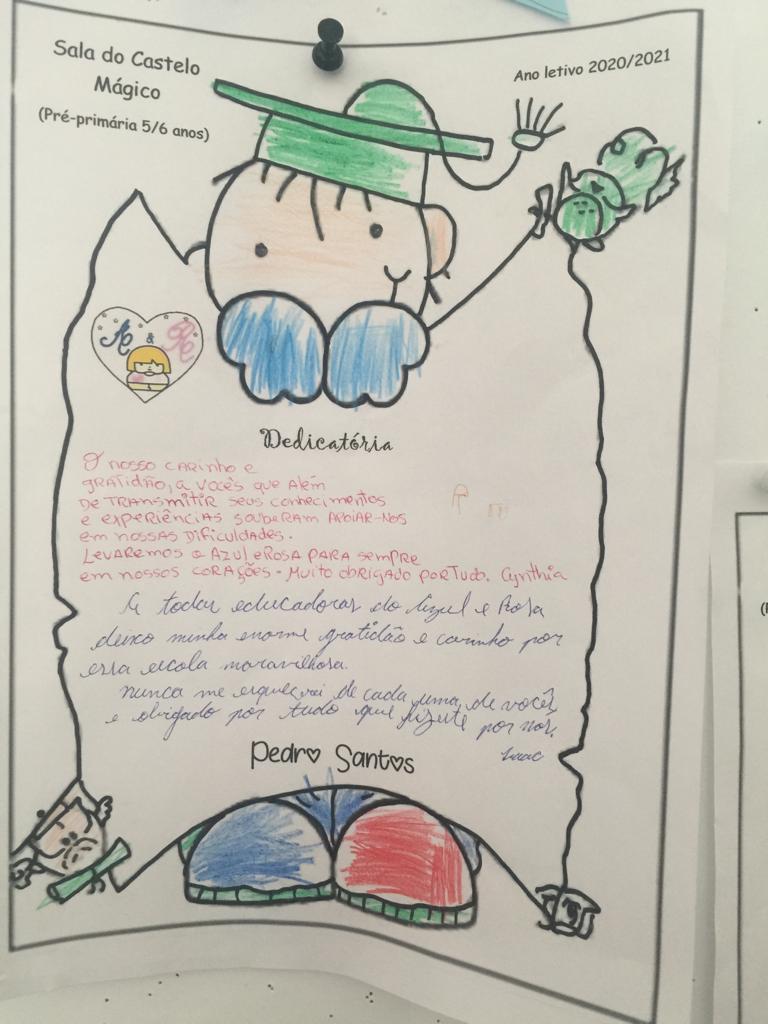 Sala do Castelo
Mágico
(Pré-primária 5/6 anos)
Ano letivo 2020/2021
A & R
Dedicatória
O nosso carinho e
gratidão, a vocês que além
de transmitir seus conhecimentos
e experiências souberam apoiar-nos
em nossas dificuldades.
Levaremos o Azul e Rosa para sempre
em nossos corações - Muito obrigado por tudo. Cynthia
A todas educadoras do Azul e Rosa
deixo minha enorme gratidão e carinho por
essa escola maravilhosa.
nunca me esquecai de cada uma de vocês
e obrigado por tudo que fizeste por nós.
Isaac
Pedro Santos